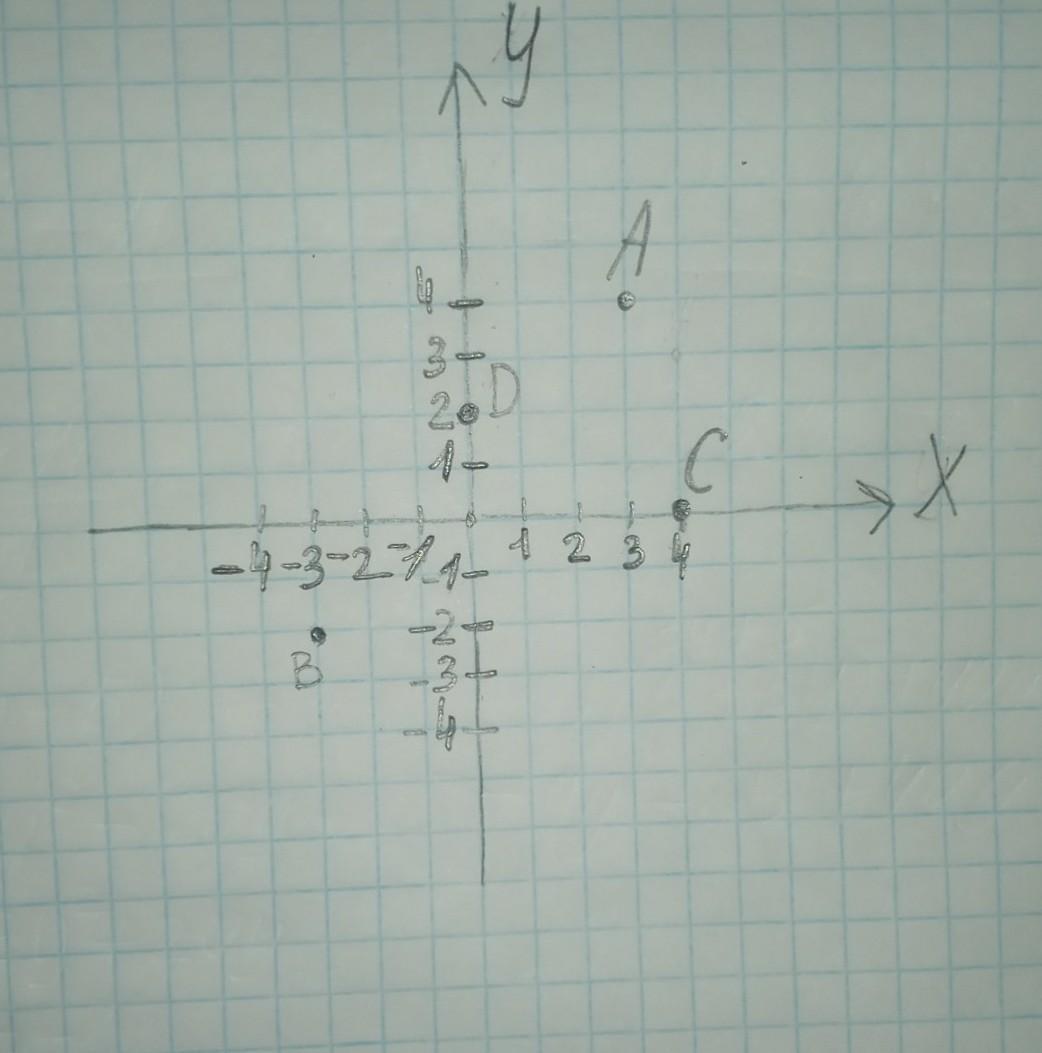 y
A
4
3
D
2
1
C
X
1 2 3 4
-4 -3 -2 -1
-1
-2
B
-3
-4